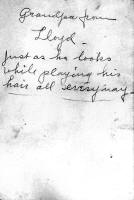 Grandpa from
Lloyd.
Just as he looks
while playing his
hair all everyway.